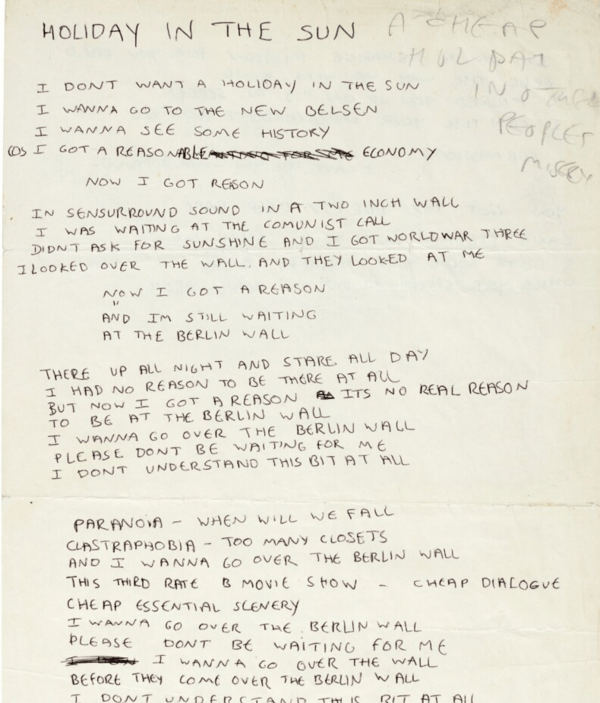 HOLIDAY IN THE SUN
A CHEAP
HOLDAY
IN OTHER
PEOPLES
MISERY
I DONT WANT A HOLIDAY IN THE SUN
I WANNA GO TO THE NEW BELSEN
I WANNA SEE SOME HISTORY
COS I GOT A REASONABLE ECONOMY
NOW I GOT REASON
IN SENSURROUND SOUND IN A TWO INCH WALL
I WAS WAITING AT THE COMUNIST CALL
DIDNT ASK FOR SUNSHINE AND I GOT WORLDWAR THREE
I LOOKED OVER THE WALL AND THEY LOOKED AT ME
NOW I GOT A REASON
" AND IM STILL WAITING
AT THE BERLIN WALL
THERE UP ALL NIGHT AND STARE ALL DAY
I HAD NO REASON TO BE THERE AT ALL
BUT NOW I GOT A REASON ITS NO REAL REASON
TO BE AT THE BERLIN WALL
I WANNA GO OVER THE BERLIN WALL
PLEASE DONT BE WAITING FOR ME
I DONT UNDERSTAND THIS BIT AT ALL
PARANOIA - WHEN WILL WE FALL
CLASTRAPHOBIA - TOO MANY CLOSETS
AND I WANNA GO OVER THE BERLIN WALL
THIS THIRD RATE B MOVIE SHOW - CHEAP DIALOGUE
CHEAP ESSENTIAL SCENERY
I WANNA GO OVER THE BERLIN WALL
PLEASE DONT BE WAITING FOR ME
I WANNA GO OVER THE WALL
BEFORE THEY COME OVER THE BERLIN WALL
I DONT UNDERSTAND THIS BIT AT ALL